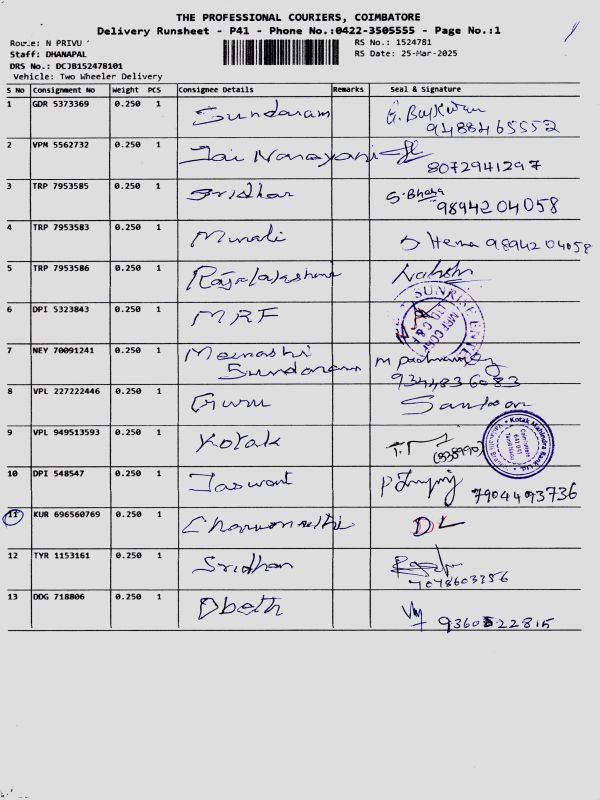 THE PROFESSIONAL COURIERS, COIMBATORE
Delivery Runsheet - P41 - Phone No.:0422-3505555 - Page No.:1
Route: N PRIVU RS No.: 1524781
Staff: DHANAPAL RS Date: 25-Mar-2025
DRS No.: DCJB152478101
Vehicle: Two Wheeler Delivery
S No Consignment No Weight PCS Consignee Details Remarks Seal & Signature
1 GDR 5373369 0.250 1 Sundaram
9488465552
2 VPM 5562732 0.250 1 Jai Narayani
8072941297
3 TRP 7953585 0.250 1 Sridhar S.Bhaga
9894204058
4 TRP 7953583 0.250 1 Murali S Hema 9894204058
5 TRP 7953586 0.250 1 Rajalakshmi
6 DPI 5323843 0.250 1 MRF SUNRISE
7 NEY 70091241 0.250 1 Meenashi
Sundaram
8 VPL 227222446 0.250 1 Guru Santoor
9 VPL 949513593 0.250 1 Kotak Kotak Mahindra Bank Ltd.
10 DPI 548547 0.250 1 Jaswant
7904493736
11 KUR 696560769 0.250 1 DL
12 TYR 1153161 0.250 1 Sridhar
13 DDG 718806 0.250 1